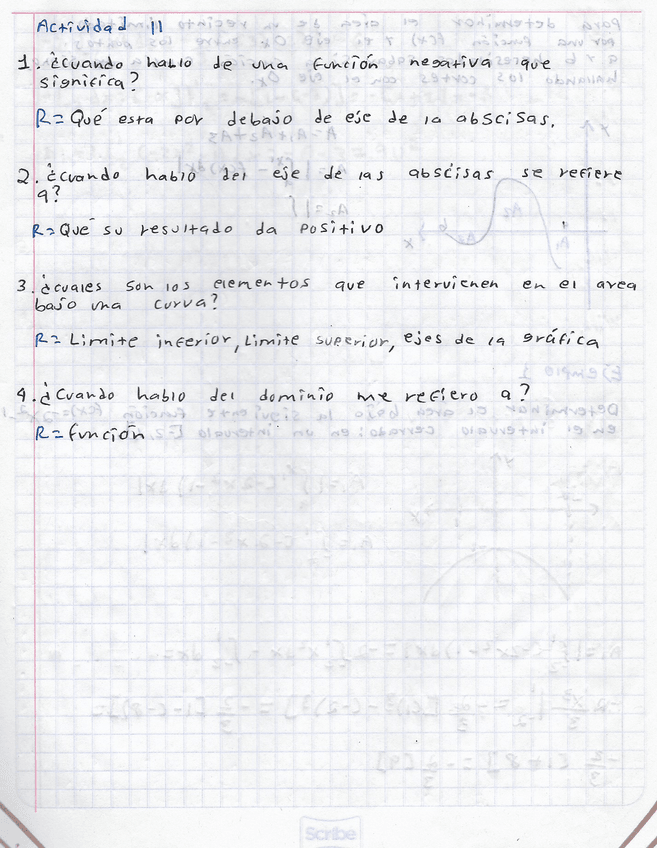 Actividad 11
1. ¿Cuando hablo de una función negativa que
significa?
R= Qué esta por debajo de eje de la abscisas.
2. ¿Cuando hablo del eje de las abscisas se refiere
a?
R= Qué su resultado da positivo
3. ¿cuales son los elementos que intervienen en el area
bajo una curva?
R= Limite inferior, Limite superior, ejes de la gráfica
4. ¿Cuando hablo del dominio me refiero a?
R= función
Scribe